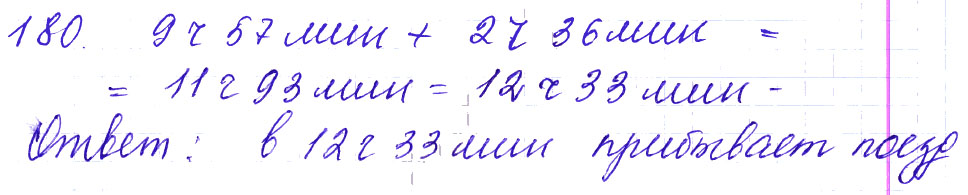 180. 9 ч 57 мин + 2 ч 36 мин =
= 11 ч 93 мин = 12 ч 33 мин -
Ответ: в 12 ч 33 мин прибывает поезд